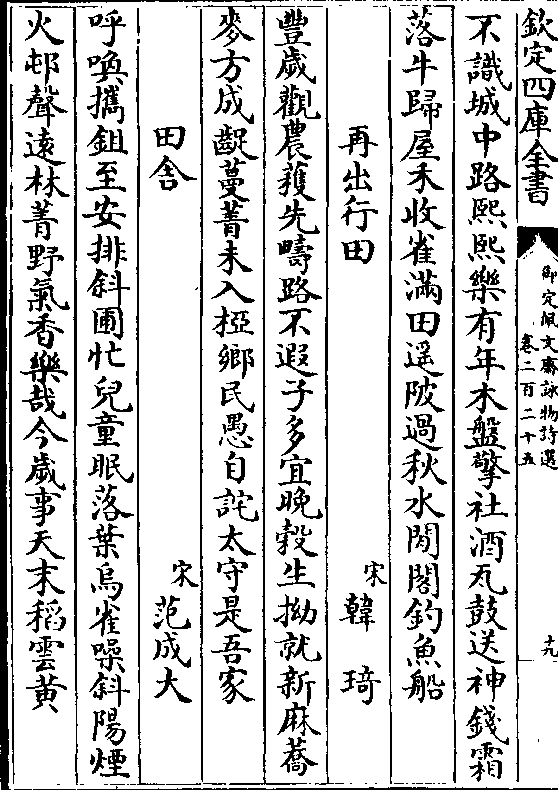 欽定四庫全書
御定佩文齋詠物詩選
卷二百二十五
十九
不識城中路熙熙樂有年木盤擎社酒瓦鼓送神錢霜
落牛歸屋禾收雀滿田遥陂過秋水閒閣釣魚船
再出行田
宋 韓琦
豐歲觀農穫先疇路不遐子多宜晚穀生拗就新麻蕎
麥方成齔蔓菁未入椏鄉民愚自詫太守是吾家
田舍
宋 范成大
呼喚攜鉏至安排斜圃忙兒童眠落葉烏雀噪斜陽煙
火邨聲遠林菁野氣香樂哉今歲事天末稻雲黄